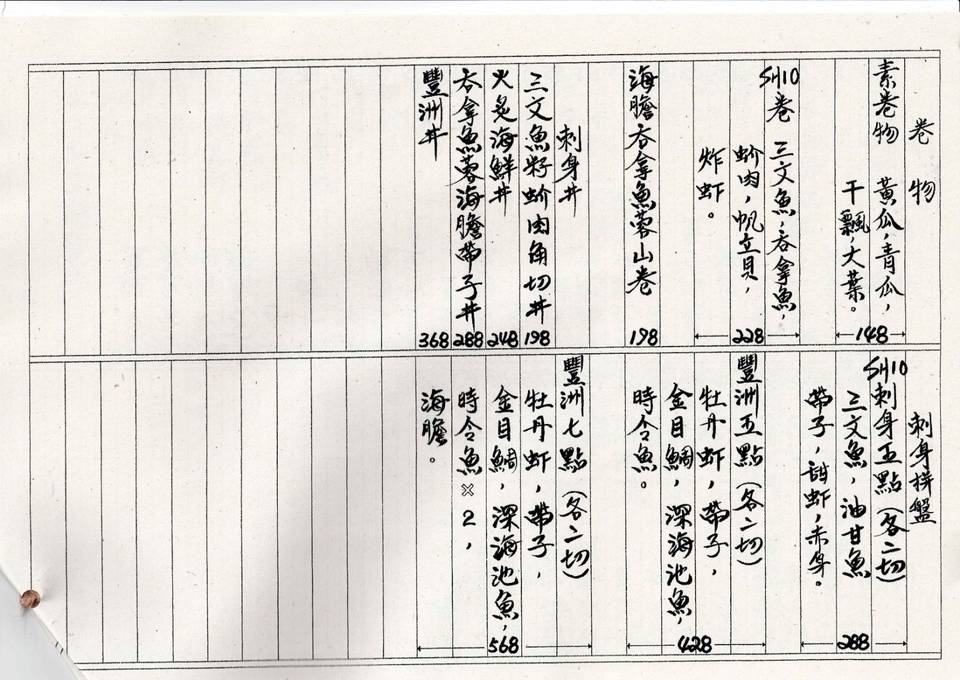 卷物
素卷物 黃瓜，青瓜，
干瓢，大葉。
148
SH10卷 三文魚，吞拿魚，
蚧肉，帆立貝，
炸虾。
228
海膽吞拿魚蓉山卷 198
刺身丼
三文魚籽蚧肉角切丼 198
火炙海鮮丼 248
吞拿魚蓉海膽帶子丼 288
豐洲丼 368
刺身拼盤
SH10刺身五點（各二切）
三文魚，油甘魚
帶子，甜虾，赤身。
288
豐洲五點（各二切）
牡丹虾，帶子，
金目鯛，深海池魚，
時令魚。
428
豐洲七點（各二切）
牡丹虾，帶子，
金目鯛，深海池魚，
時令魚×2，
海膽。
568